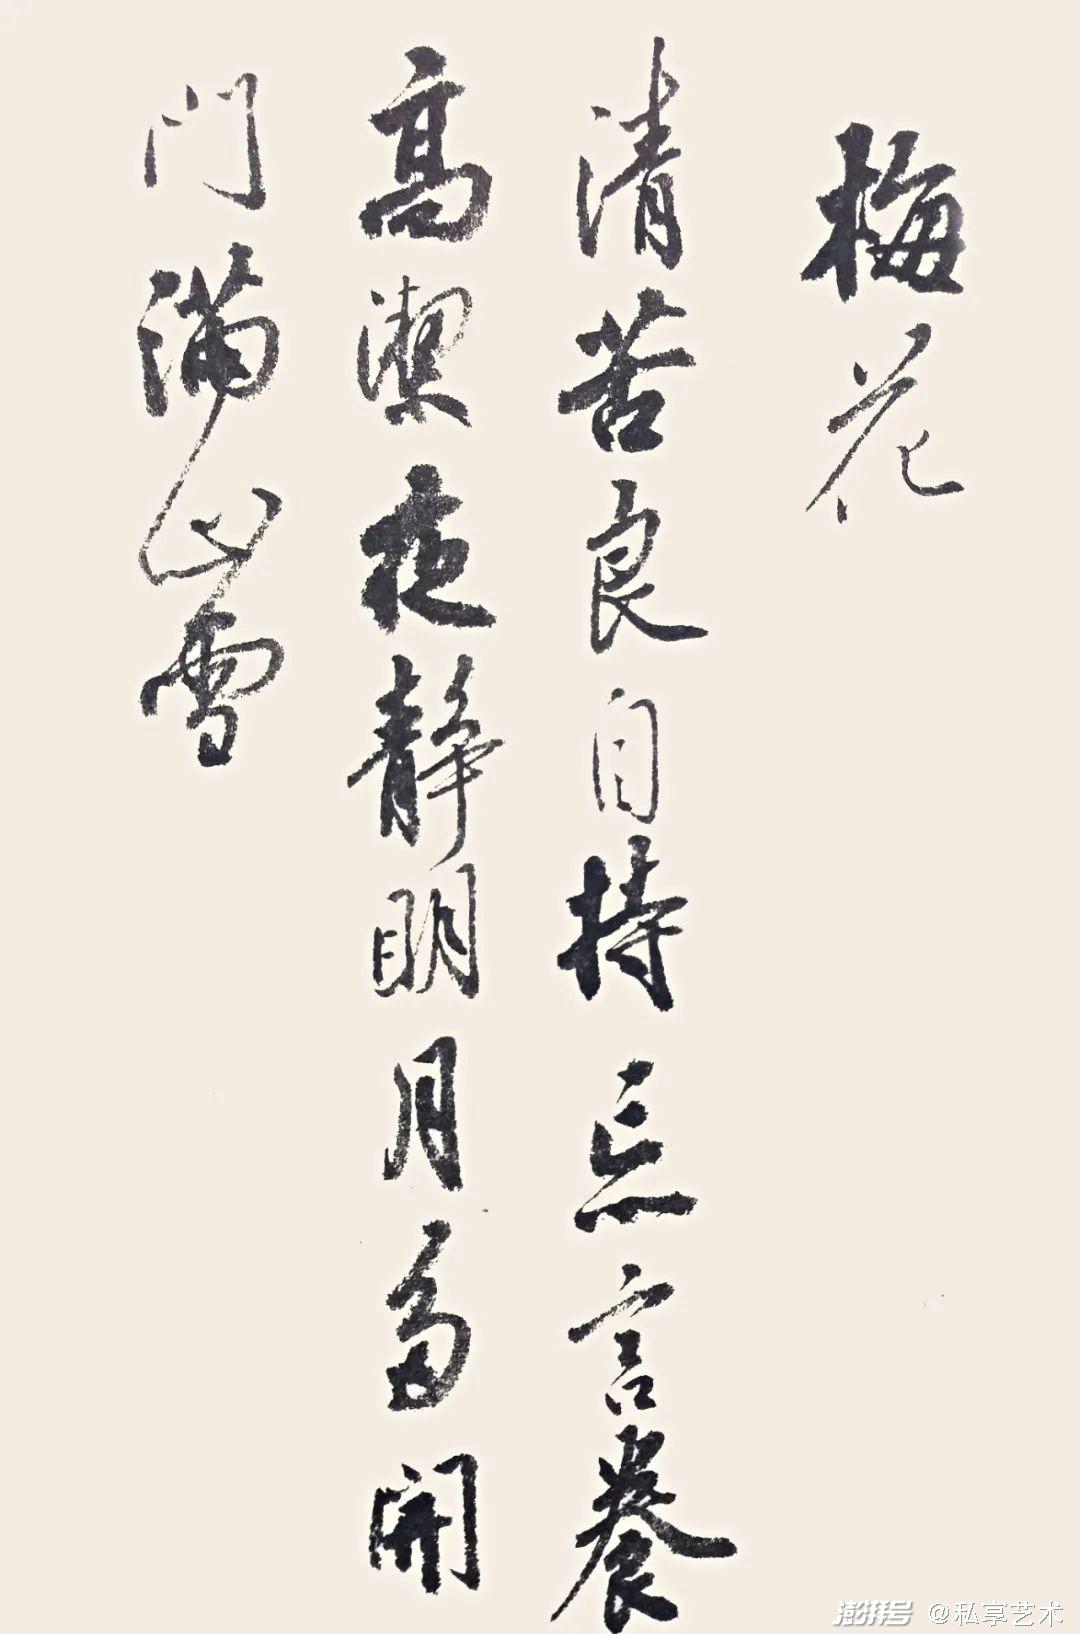 梅花
清苦良自持忘言養
高潔夜静明月多開
門滿山雪
澎湃号 @私享艺术